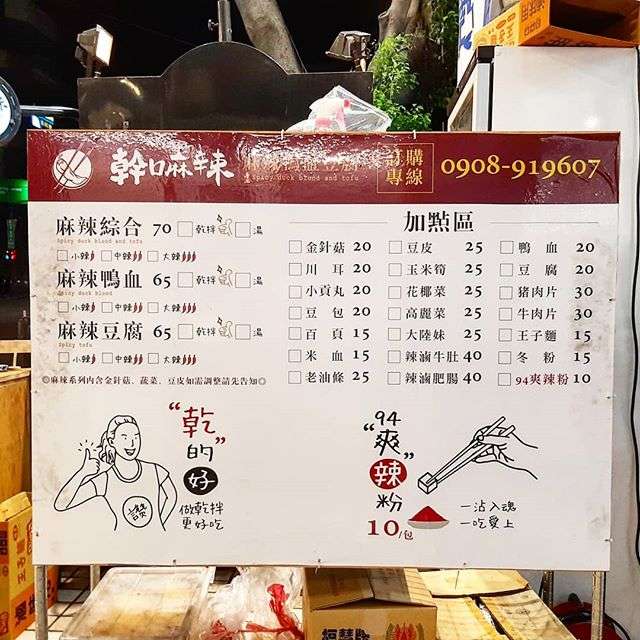 幹嘛辣
Spicy duck blood and tofu
訂購
專線
0908-919607
麻辣綜合 70 乾拌 湯
Spicy duck blood and tofu
小辣 中辣 大辣
麻辣鴨血 65 乾拌 湯
Spicy duck blood
小辣 中辣 大辣
麻辣豆腐 65 乾拌 湯
Spicy tofu
小辣 中辣 大辣
◎麻辣系列內含金針菇、蔬菜、豆皮如需調整請先告知◎
加點區
金針菇 20
川耳 20
小貢丸 20
豆包 20
百頁 15
米血 15
老油條 25
豆皮 25
玉米筍 25
花椰菜 25
高麗菜 25
大陸妹 25
辣滷牛肚 40
辣滷肥腸 40
鴨血 20
豆腐 20
豬肉片 30
牛肉片 30
王子麵 15
冬粉 15
94爽辣粉 10
“乾”
的
好
做乾拌
更好吃
讚
94
“爽”
辣
粉
10/包
一沾入魂
一吃愛上